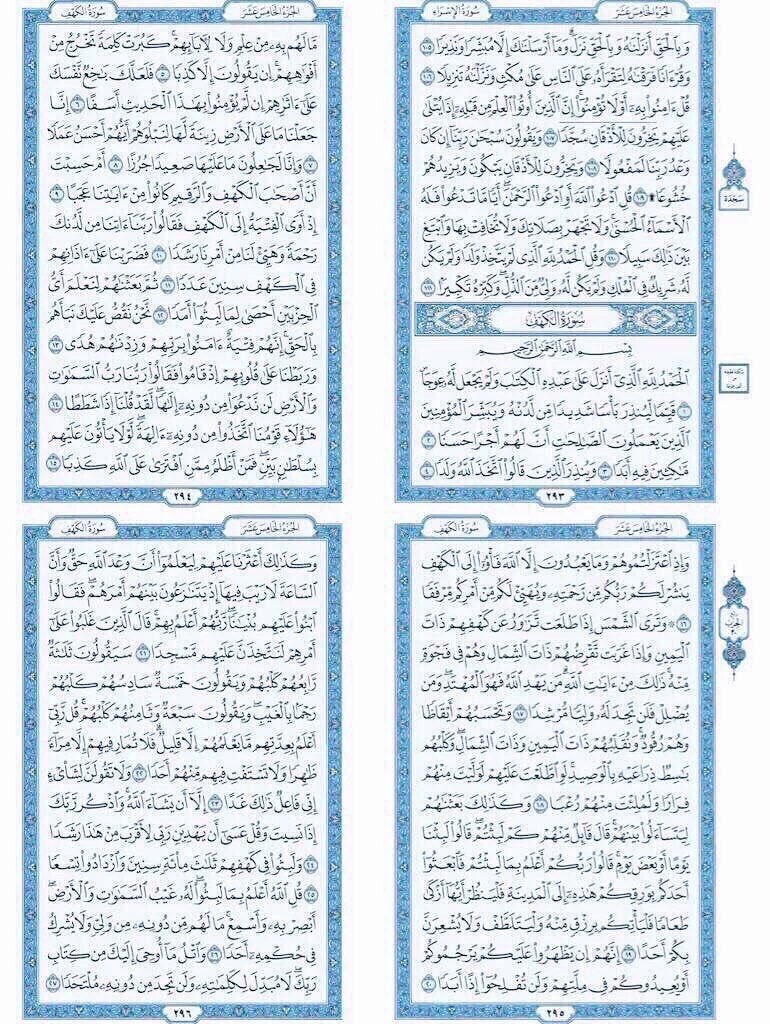 سُورَةُ الإِسْرَاء
الجُزْءُ الخَامِسَ عَشَرَ
وَبِالْحَقِّ أَنزَلْنَاهُ وَبِالْحَقِّ نَزَلَ وَمَا أَرْسَلْنَاكَ إِلَّا مُبَشِّرًا وَنَذِيرًا ١٠٥
وَقُرْءَانًا فَرَقْنَاهُ لِتَقْرَأَهُ عَلَى النَّاسِ عَلَى مُكْثٍ وَنَزَّلْنَاهُ تَنزِيلًا ١٠٦
قُلْ ءَامِنُوا بِهِ أَوْ لَا تُؤْمِنُوا إِنَّ الَّذِينَ أُوتُوا الْعِلْمَ مِن قَبْلِهِ إِذَا يُتْلَى
عَلَيْهِمْ يَخِرُّونَ لِلْأَذْقَانِ سُجَّدًا ١٠٧ وَيَقُولُونَ سُبْحَانَ رَبِّنَا إِن كَانَ
وَعْدُ رَبِّنَا لَمَفْعُولًا ١٠٨ وَيَخِرُّونَ لِلْأَذْقَانِ يَبْكُونَ وَيَزِيدُهُمْ
خُشُوعًا ۩ ١٠٩ قُلِ ادْعُوا اللَّهَ أَوِ ادْعُوا الرَّحْمَٰنَ أَيًّا مَّا تَدْعُوا فَلَهُ
الْأَسْمَاءُ الْحُسْنَى وَلَا تَجْهَرْ بِصَلَاتِكَ وَلَا تُخَافِتْ بِهَا وَابْتَغِ
بَيْنَ ذَٰلِكَ سَبِيلًا ١١٠ وَقُلِ الْحَمْدُ لِلَّهِ الَّذِي لَمْ يَتَّخِذْ وَلَدًا وَلَمْ يَكُن
لَّهُ شَرِيكٌ فِي الْمُلْكِ وَلَمْ يَكُن لَّهُ وَلِيٌّ مِّنَ الذُّلِّ وَكَبِّرْهُ تَكْبِيرًا ١١١
سُورَةُ الكَهْفِ
بِسْمِ اللَّهِ الرَّحْمَٰنِ الرَّحِيمِ
الْحَمْدُ لِلَّهِ الَّذِي أَنزَلَ عَلَى عَبْدِهِ الْكِتَابَ وَلَمْ يَجْعَل لَّهُ عِوَجًا
١ قَيِّمًا لِّيُنذِرَ بَأْسًا شَدِيدًا مِّن لَّدُنْهُ وَيُبَشِّرَ الْمُؤْمِنِينَ
الَّذِينَ يَعْمَلُونَ الصَّالِحَاتِ أَنَّ لَهُمْ أَجْرًا حَسَنًا ٢
مَّاكِثِينَ فِيهِ أَبَدًا ٣ وَيُنذِرَ الَّذِينَ قَالُوا اتَّخَذَ اللَّهُ وَلَدًا ٤
٢٩٣
سَجْدَة
سُورَةُ الكَهْفِ
الجُزْءُ الخَامِسَ عَشَرَ
مَّا لَهُم بِهِ مِنْ عِلْمٍ وَلَا لِآبَائِهِمْ كَبُرَتْ كَلِمَةً تَخْرُجُ مِنْ
أَفْوَاهِهِمْ إِن يَقُولُونَ إِلَّا كَذِبًا ٥ فَلَعَلَّكَ بَاخِعٌ نَّفْسَكَ
عَلَى ءَاثَارِهِمْ إِن لَّمْ يُؤْمِنُوا بِهَٰذَا الْحَدِيثِ أَسَفًا ٦ إِنَّا
جَعَلْنَا مَا عَلَى الْأَرْضِ زِينَةً لَّهَا لِنَبْلُوَهُمْ أَيُّهُمْ أَحْسَنُ عَمَلًا
٧ وَإِنَّا لَجَاعِلُونَ مَا عَلَيْهَا صَعِيدًا جُرُزًا ٨ أَمْ حَسِبْتَ
أَنَّ أَصْحَابَ الْكَهْفِ وَالرَّقِيمِ كَانُوا مِنْ ءَايَاتِنَا عَجَبًا ٩
إِذْ أَوَى الْفِتْيَةُ إِلَى الْكَهْفِ فَقَالُوا رَبَّنَا ءَاتِنَا مِن لَّدُنكَ
رَحْمَةً وَهَيِّئْ لَنَا مِنْ أَمْرِنَا رَشَدًا ١٠ فَضَرَبْنَا عَلَى ءَاذَانِهِمْ
فِي الْكَهْفِ سِنِينَ عَدَدًا ١١ ثُمَّ بَعَثْنَاهُمْ لِنَعْلَمَ أَيُّ
الْحِزْبَيْنِ أَحْصَى لِمَا لَبِثُوا أَمَدًا ١٢ نَّحْنُ نَقُصُّ عَلَيْكَ نَبَأَهُم
بِالْحَقِّ إِنَّهُمْ فِتْيَةٌ ءَامَنُوا بِرَبِّهِمْ وَزِدْنَاهُمْ هُدًى ١٣
وَرَبَطْنَا عَلَى قُلُوبِهِمْ إِذْ قَامُوا فَقَالُوا رَبُّنَا رَبُّ السَّمَاوَاتِ
وَالْأَرْضِ لَن نَّدْعُوَا مِن دُونِهِ إِلَٰهًا لَّقَدْ قُلْنَا إِذًا شَطَطًا ١٤
هَٰؤُلَاءِ قَوْمُنَا اتَّخَذُوا مِن دُونِهِ ءَالِهَةً لَّوْلَا يَأْتُونَ عَلَيْهِم
بِسُلْطَانٍ بَيِّنٍ فَمَنْ أَظْلَمُ مِمَّنِ افْتَرَى عَلَى اللَّهِ كَذِبًا ١٥
٢٩٤
سُورَةُ الكَهْفِ
الجُزْءُ الخَامِسَ عَشَرَ
وَإِذِ اعْتَزَلْتُمُوهُمْ وَمَا يَعْبُدُونَ إِلَّا اللَّهَ فَأْوُوا إِلَى الْكَهْفِ
يَنشُرْ لَكُمْ رَبُّكُم مِّن رَّحْمَتِهِ وَيُهَيِّئْ لَكُم مِّنْ أَمْرِكُم مِّرْفَقًا
١٦ ۞ وَتَرَى الشَّمْسَ إِذَا طَلَعَت تَّزَاوَرُ عَن كَهْفِهِمْ ذَاتَ
الْيَمِينِ وَإِذَا غَرَبَت تَّقْرِضُهُمْ ذَاتَ الشِّمَالِ وَهُمْ فِي فَجْوَةٍ
مِّنْهُ ذَٰلِكَ مِنْ ءَايَاتِ اللَّهِ مَن يَهْدِ اللَّهُ فَهُوَ الْمُهْتَدِ وَمَن
يُضْلِلْ فَلَن تَجِدَ لَهُ وَلِيًّا مُّرْشِدًا ١٧ وَتَحْسَبُهُمْ أَيْقَاظًا
وَهُمْ رُقُودٌ وَنُقَلِّبُهُمْ ذَاتَ الْيَمِينِ وَذَاتَ الشِّمَالِ وَكَلْبُهُم
بَاسِطٌ ذِرَاعَيْهِ بِالْوَصِيدِ لَوِ اطَّلَعْتَ عَلَيْهِمْ لَوَلَّيْتَ مِنْهُمْ
فِرَارًا وَلَمُلِئْتَ مِنْهُمْ رُعْبًا ١٨ وَكَذَٰلِكَ بَعَثْنَاهُمْ
لِيَتَسَاءَلُوا بَيْنَهُمْ قَالَ قَائِلٌ مِّنْهُمْ كَمْ لَبِثْتُمْ قَالُوا لَبِثْنَا
يَوْمًا أَوْ بَعْضَ يَوْمٍ قَالُوا رَبُّكُمْ أَعْلَمُ بِمَا لَبِثْتُمْ فَابْعَثُوا
أَحَدَكُم بِوَرِقِكُمْ هَٰذِهِ إِلَى الْمَدِينَةِ فَلْيَنظُرْ أَيُّهَا أَزْكَى
طَعَامًا فَلْيَأْتِكُم بِرِزْقٍ مِّنْهُ وَلْيَتَلَطَّفْ وَلَا يُشْعِرَنَّ
بِكُمْ أَحَدًا ١٩ إِنَّهُمْ إِن يَظْهَرُوا عَلَيْكُمْ يَرْجُمُوكُمْ
أَوْ يُعِيدُوكُمْ فِي مِلَّتِهِمْ وَلَن تُفْلِحُوا إِذًا أَبَدًا ٢٠
٢٩٥
سُورَةُ الكَهْفِ
الجُزْءُ الخَامِسَ عَشَرَ
وَكَذَٰلِكَ أَعْثَرْنَا عَلَيْهِمْ لِيَعْلَمُوا أَنَّ وَعْدَ اللَّهِ حَقٌّ وَأَنَّ
السَّاعَةَ لَا رَيْبَ فِيهَا إِذْ يَتَنَازَعُونَ بَيْنَهُمْ أَمْرَهُمْ فَقَالُوا
ابْنُوا عَلَيْهِم بُنْيَانًا رَّبُّهُمْ أَعْلَمُ بِهِمْ قَالَ الَّذِينَ غَلَبُوا عَلَى
أَمْرِهِمْ لَنَتَّخِذَنَّ عَلَيْهِم مَّسْجِدًا ٢١ سَيَقُولُونَ ثَلَاثَةٌ
رَّابِعُهُمْ كَلْبُهُمْ وَيَقُولُونَ خَمْسَةٌ سَادِسُهُمْ كَلْبُهُمْ
رَجْمًا بِالْغَيْبِ وَيَقُولُونَ سَبْعَةٌ وَثَامِنُهُمْ كَلْبُهُمْ قُل رَّبِّي
أَعْلَمُ بِعِدَّتِهِم مَّا يَعْلَمُهُمْ إِلَّا قَلِيلٌ فَلَا تُمَارِ فِيهِمْ إِلَّا مِرَاءً
ظَاهِرًا وَلَا تَسْتَفْتِ فِيهِم مِّنْهُمْ أَحَدًا ٢٢ وَلَا تَقُولَنَّ لِشَايْءٍ
إِنِّي فَاعِلٌ ذَٰلِكَ غَدًا ٢٣ إِلَّا أَن يَشَاءَ اللَّهُ وَاذْكُر رَّبَّكَ
إِذَا نَسِيتَ وَقُلْ عَسَى أَن يَهْدِيَنِ رَبِّي لِأَقْرَبَ مِنْ هَٰذَا رَشَدًا
٢٤ وَلَبِثُوا فِي كَهْفِهِمْ ثَلَاثَ مِائَةٍ سِنِينَ وَازْدَادُوا تِسْعًا
٢٥ قُلِ اللَّهُ أَعْلَمُ بِمَا لَبِثُوا لَهُ غَيْبُ السَّمَاوَاتِ وَالْأَرْضِ
أَبْصِرْ بِهِ وَأَسْمِعْ مَا لَهُم مِّن دُونِهِ مِن وَلِيٍّ وَلَا يُشْرِكُ
فِي حُكْمِهِ أَحَدًا ٢٦ وَاتْلُ مَا أُوحِيَ إِلَيْكَ مِن كِتَابِ
رَبِّكَ لَا مُبَدِّلَ لِكَلِمَاتِهِ وَلَن تَجِدَ مِن دُونِهِ مُلْتَحَدًا ٢٧
٢٩٦